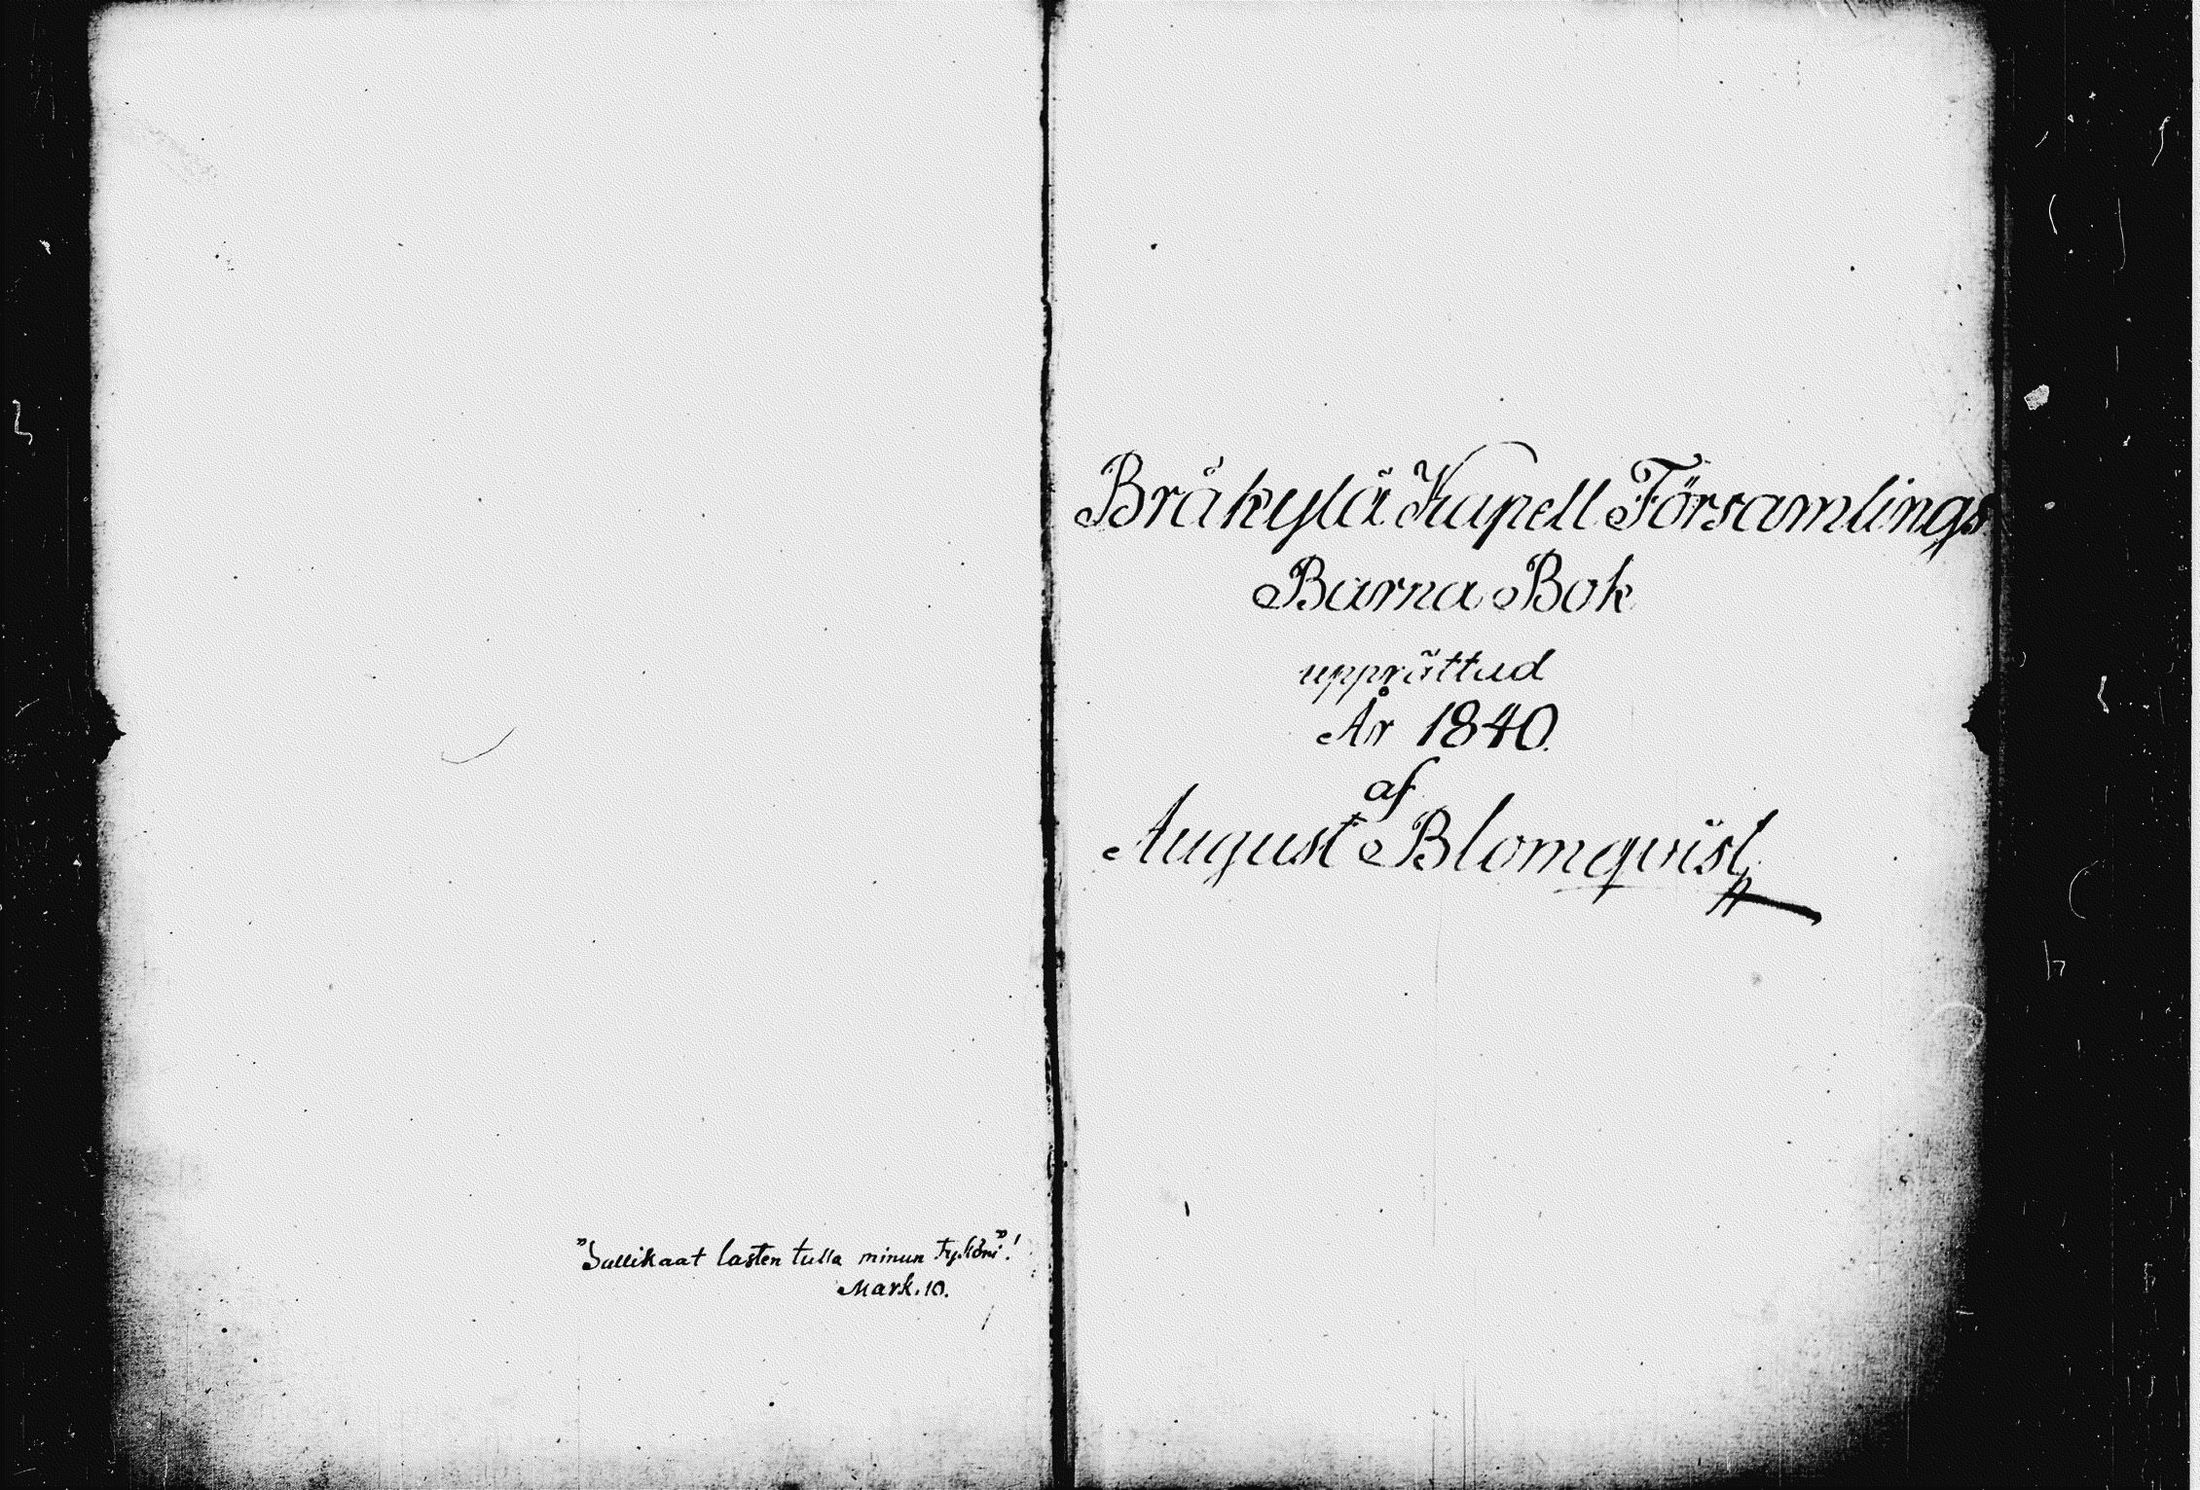 "Sallikaat lasten tulla minun tyköni"!
Mark. 10.
Bråkylä Kapell Församlings
Barna Bok
upprättad
År 1840.
af
August Blomqvist